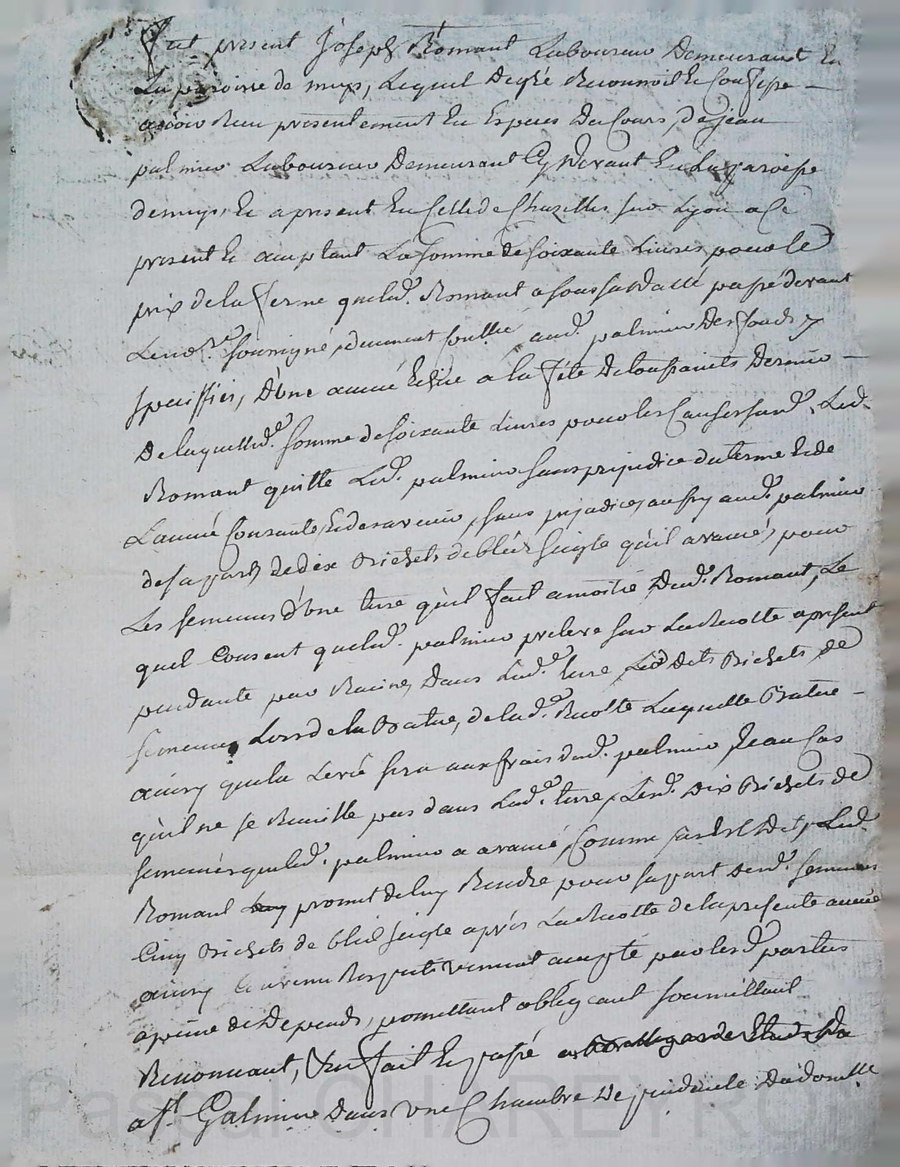 Fut present Joseph Romant Laboureur Demeurant En
La paroisse de meys, Lequel De gré Reconnoit Et Confesse
avoir Reçu presentement En Especes Du Cours, de jean
palmier Laboureur Demeurant Cy Devant En La paroisse
de meys, Et apresent En Celle de Chazelles sur Lyon a Ce
present Et aceptant La somme de soixante Livres pour le
prix de la ferme que led. Romant a sous sa datte passé devant
Le no.re soussigné, deument  aud. palmier Des fonds y
speciffiés, D'une année Echue a la fete De toussaints Derniere
De laquelle d. somme de soixante Livres pour les Causes susd. Led.
Romant quitte Led. palmier sans prejudice du terme Et de
L'année Courante, Et des avenir, sans prejudice aussy aud. palmier
de sa part, De dix Bichets de bled seigle qu'il a avancés pour
Les semences d'une terre qu'il fait a moitié Dud. Romant, Le
quel Consent que led. palmier preleve sur La Recolte apresent
pendante par Racines Dans Lad. terre Les Dits Bichets de
semences Lors de la Batue, de lad. Recolte Laquelle Batue
ainsy que la Levée sera aux frais dud. palmier En Cas
qu'il ne se Recueille pas dans Lad. terre, Lesd. Dix Bichets de
semences que led. palmier a avancé, Comme sus Est Dit, Led.
Romant promet de luy Rendre pour sa part Desd. semences
Cinq Bichets de bled seigle après La Recolte de la presente année
ainsy Convenu Respectivement accepté par lesd. parties
a peine de Depends, promettant obligeant soumettant
Renoncant, &c fait Et passé
a St Galmier Dans une Chambre De Du domicile
Pascal CHAREYRON